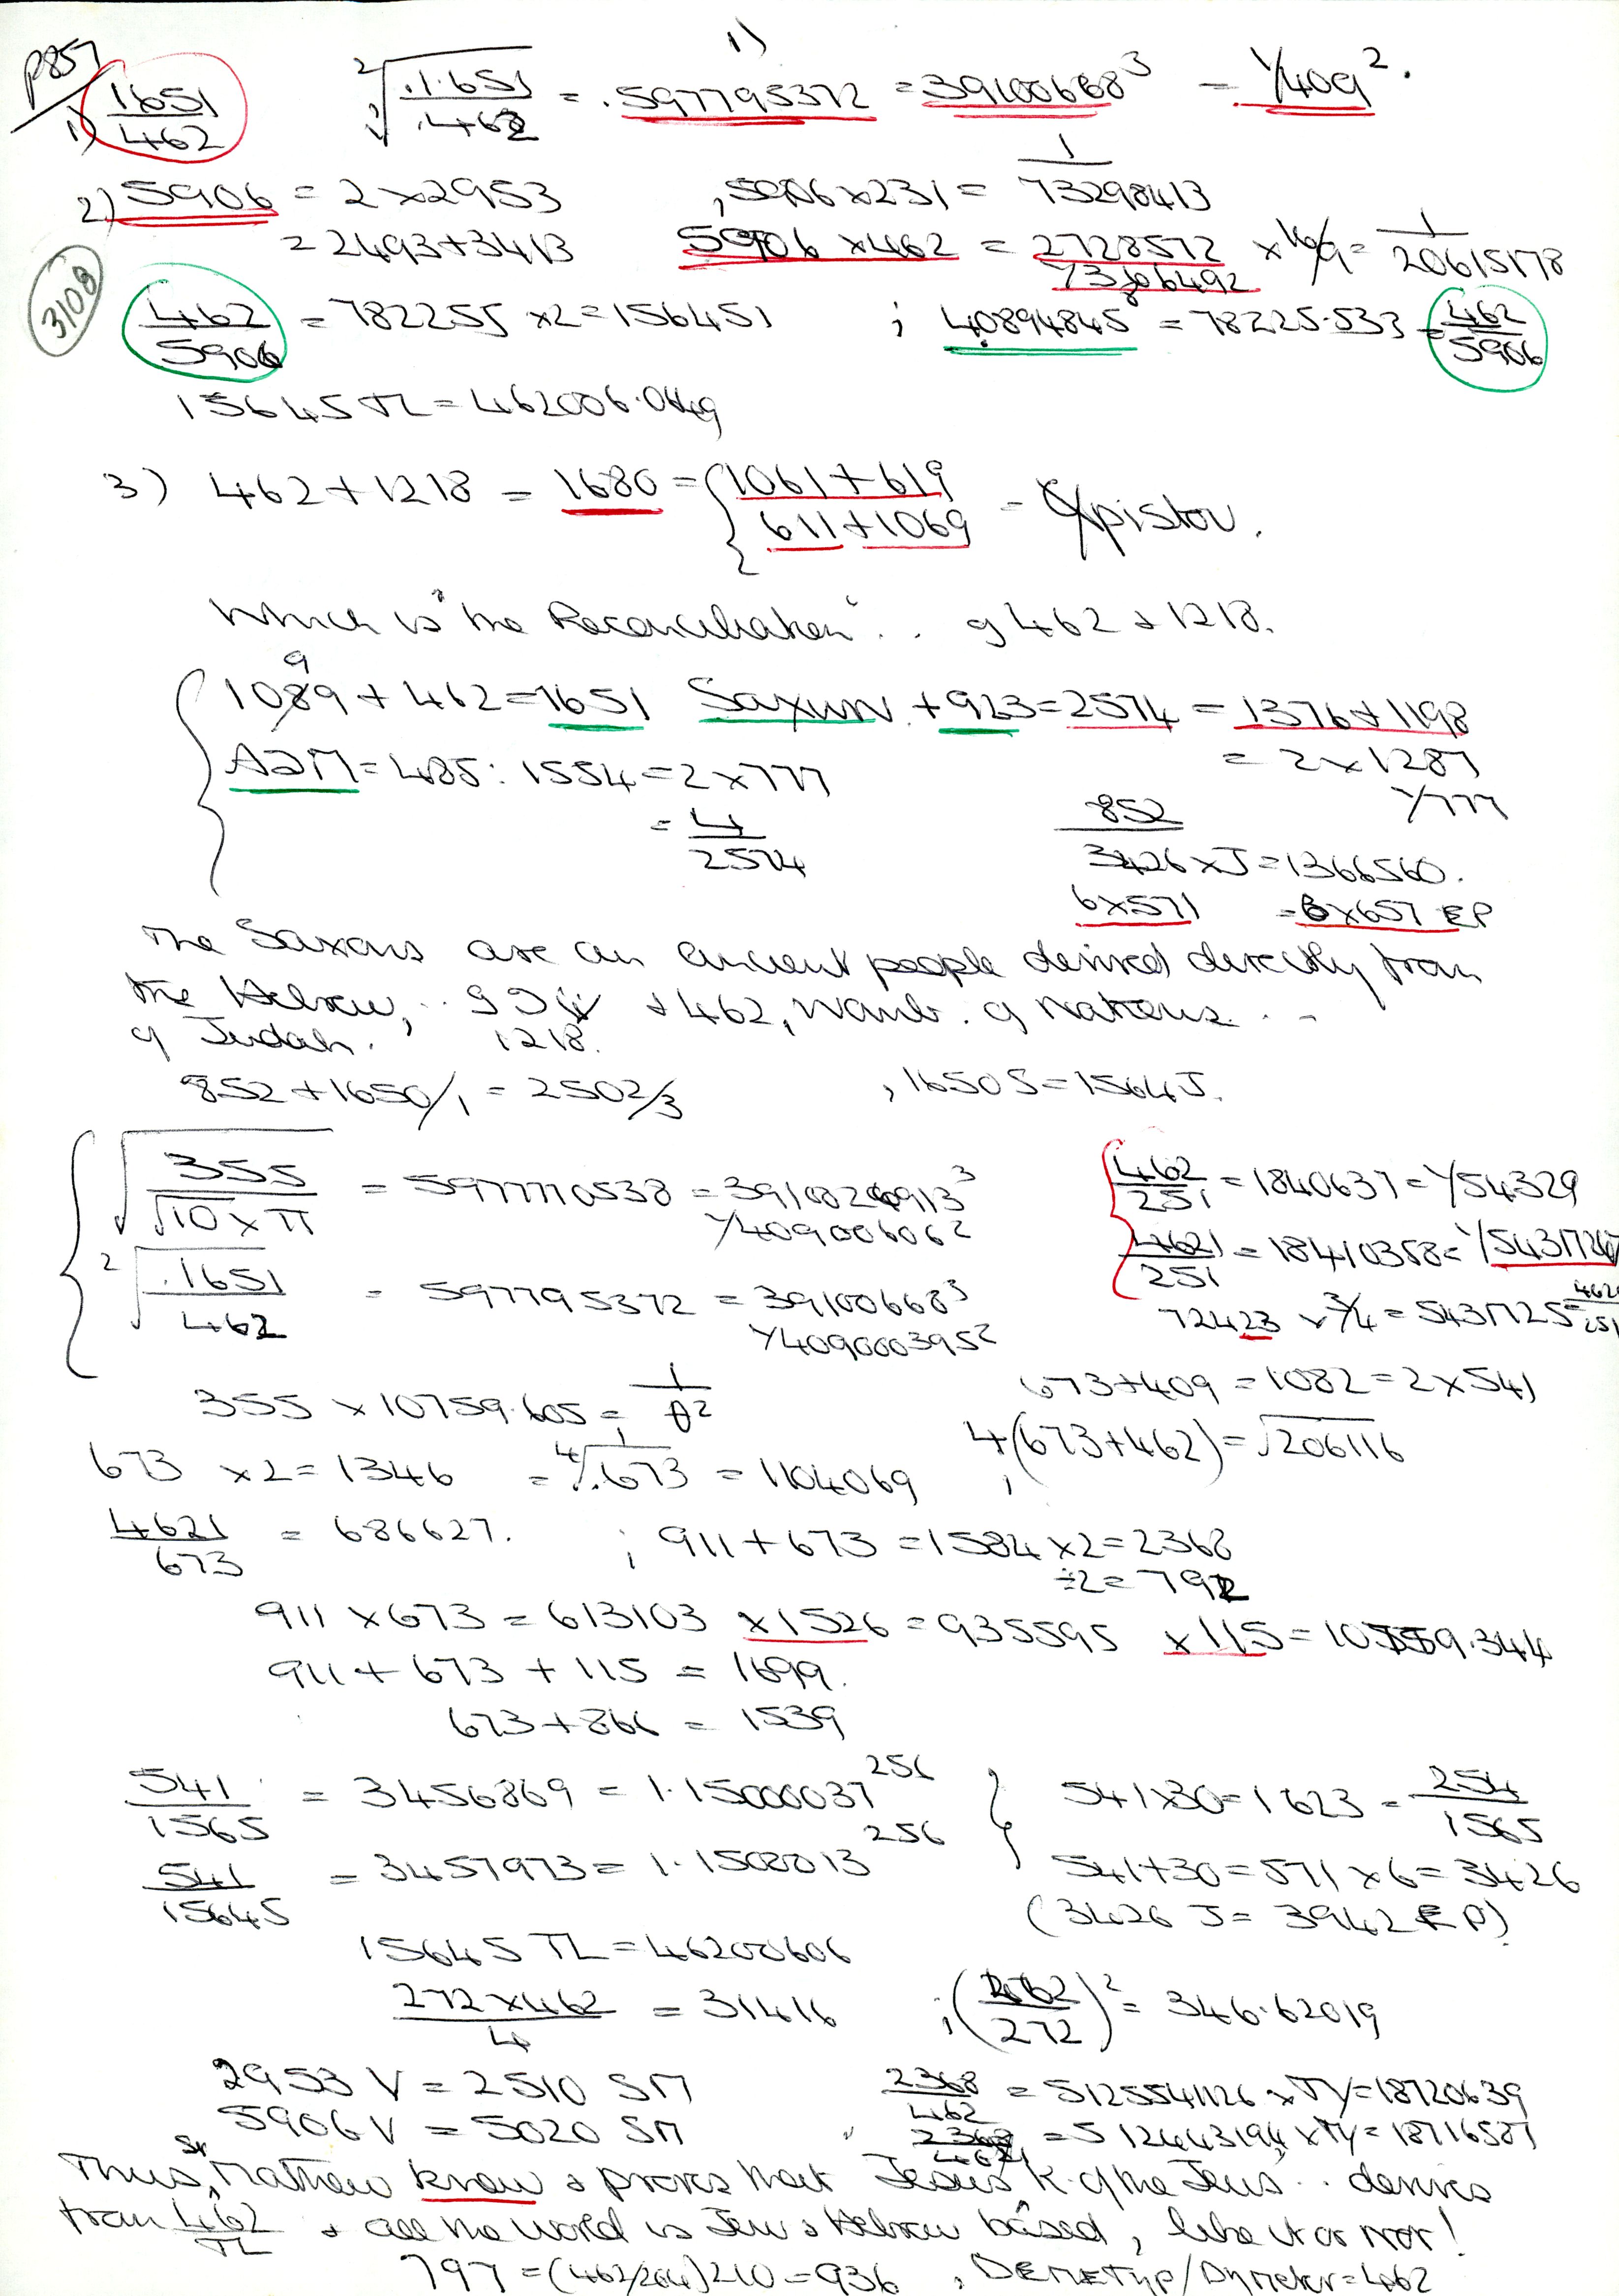 p857
1)
1) 1651/462   ²√(.1651/.462) = .597795372 = 39100668³ = 1/409².
2) 5906 = 2×2953   , 5906×231 = 1/73298413
= 2493+3413   5906 ×462 = 2728572 ×16/9 = 1/20615178
1/3666492
3108
462/5906 = 782255 ×2=156451   ; 40894845 = 78225.533 = 462/5906
15645 TL = 462006.0649
3) 462+1218 = 1680 = { 1061+619
611+1069
Which is "the Reconciliation" .. of 462 + 1218.
9
1089 + 462 = 1651 Saxum +923 = 2574 = 1376+1198
= 485 : 1554 = 2×777   = 2×1287
1/777
= 4/2574   852
3426 × J = 1366560.
6×571   = 6×657 EP
The Saxons are an ancient people derived directly from
the Hebrew, .. + 462, of Nations ...
of Judah.   1218.
852 + 1650/1 = 2502/3   , 1650 S = 1564 J.
√(355/√10×π) = 5977770538 =
1/409006062
462/251 = 1840637 = 1/54329
²√(.1651/462) = 597795372 = 39100668³
1/4090003952
4621/251 = 18410358 = 1/5431726
72423 × 3/4 = 5431725 = 462/251
355 × 10759.605 = 1/θ²   673+409 = 1082 = 2×541
673 ×2 = 1346 = 1/⁴√.673 = 1104069   ; 4(673+462) = √206116
4621/673 = 686627.   ; 911+673 = 1584 ×2=2368
÷2= 792
911 ×673 = 613103 ×1526 = 935595 ×115 =
911 + 673 + 115 = 1699.
673+866 = 1539
541/1565 = 3456869 = 1.15000037²⁵⁶ } 541×30=1623 = 254/1565
541/15645 = 3457973 = 1.1500013²⁵⁶   541+30 = 571 ×6 = 3426
(3426 J = 3942 EP)
15645 TL = 46200606
272×462/4 = 31416   ; (/272)² = 346.62019
2953 V = 2510 SM   2368/462 = 5125541126 × Ty = 18720639
5906 V = 5020 SM   , 2368/4621 = 512443194 × Ty = 18716587
Thus, St Mathew know & proves that Jesus K. of the Jews .. derives
from 462/TL & all the world is Jew & Hebrew based, like it or not!
797 = (462/264)210 = 936   , /Dymeter = 462